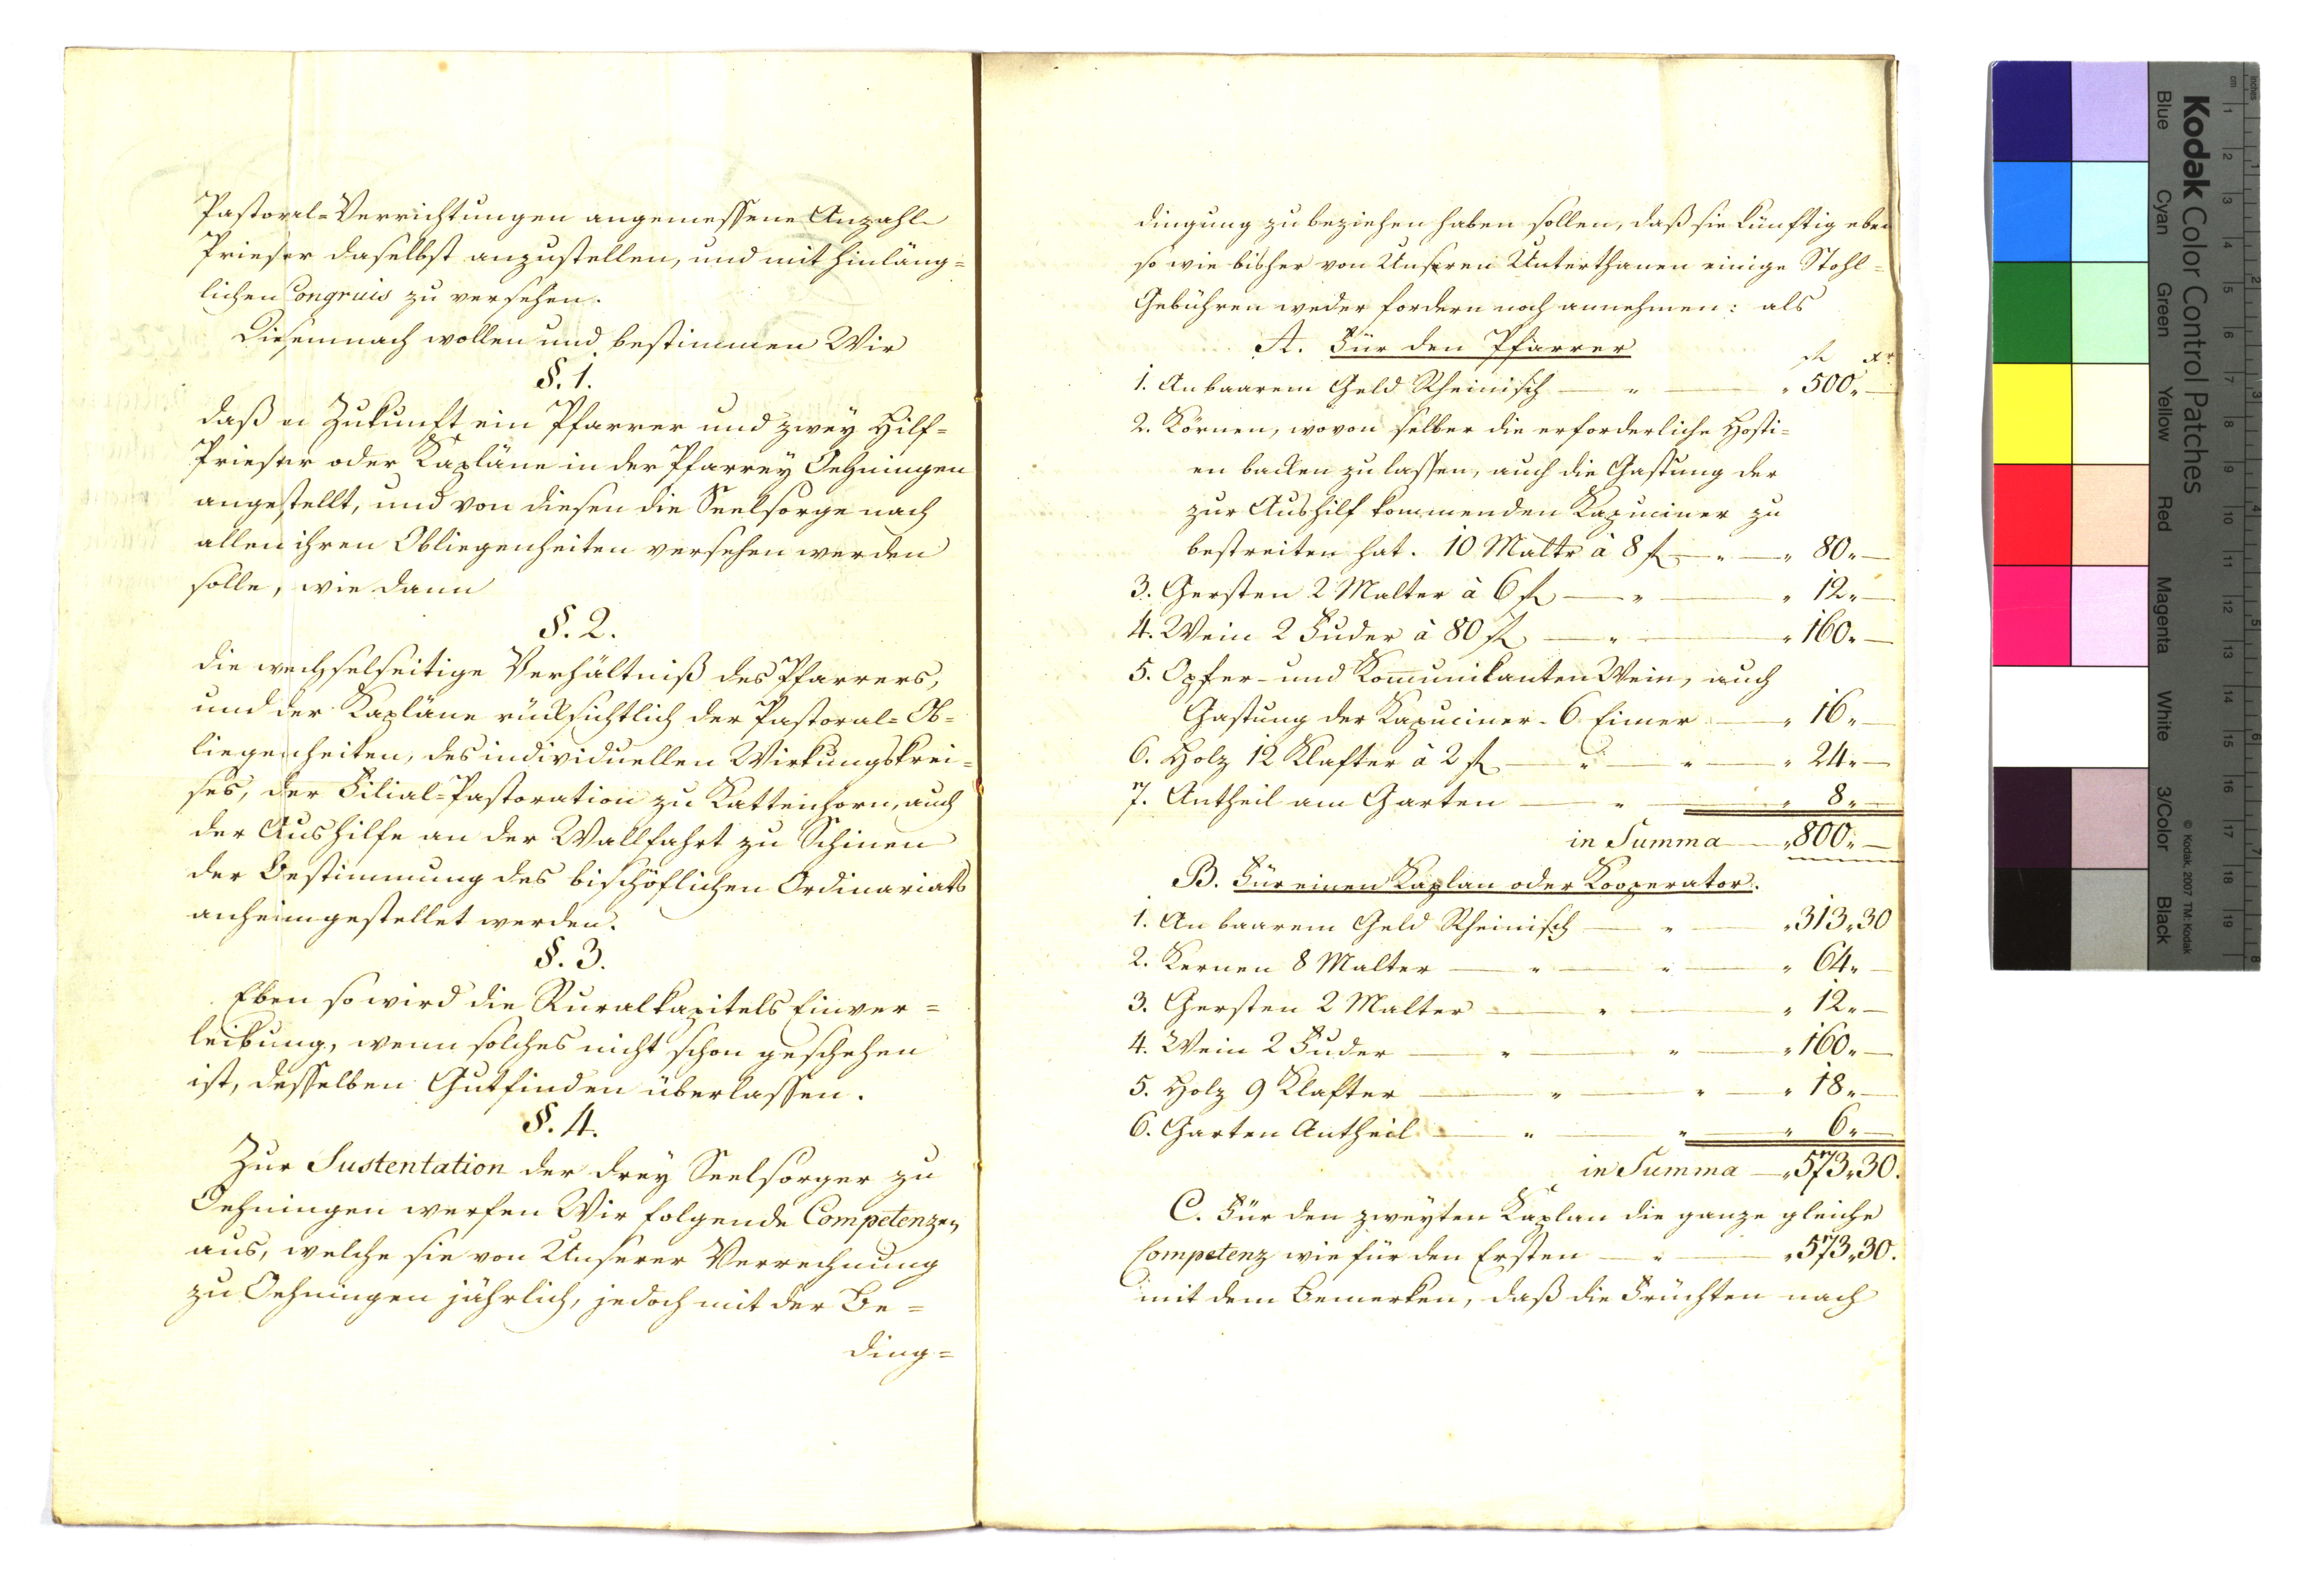 Pastoral-Verrichtungen angemessene Anzahl
Priester daselbst anzustellen, und mit hinläng=
lichen Congruis zu versehen.
Diesemnach wollen und bestimmen Wir
§. 1.
daß in Zukunft ein Pfarrer und zwey Hilf=
Priester oder Kapläne in der Pfarrey Oehningen
angestellt, und von diesen die Seelsorge nach
allen ihren Obliegenheiten versehen werden
solle, wie dann
§. 2.
die wechselseitige Verhältniß des Pfarrers,
und der Kapläne rücksichtlich der Pastoral=Ob=
liegenheiten, des individuellen Wirkungskrei=
ses, der Filial=Pastoration zu Kattenhorn, auch
der Aushilfe an der Wallfahrt zu Schinen
der Bestimmung des bischöflichen Ordinariats
anheimgestellet werden.
§. 3.
Eben so wird die Ruralkapitels Einver=
leibung, wenn solches nicht schon geschehen
ist, desselben Gutfinden überlassen.
§. 4.
Zur Sustentation der drey Seelsorger zu
Oehningen werfen Wir folgende Competenzen
aus, welche sie von Unserer Verrechnung
zu Oehningen jährlich, jedoch mit der Be=
ding=
dingung zu beziehen haben sollen, daß sie künftig eben
so wie bisher von Unseren Unterthanen einige Stohl=
Gebühren weder fordern noch annehmen: als
A. Für den Pfarrer
fl xr
1. An baarem Geld Rheinisch — " — " 500 " —
2. Körnen, wovon selber die erforderliche Hosti=
en backen zu lassen, auch die Gastung der
zur Aushilf kommenden Kapuciner zu
bestreiten hat. 10 Maltr à 8 f — " — " 80 " —
3. Gersten 2 Malter à 6 fl — " — " 12 " —
4. Wein 2 Fuder à 80 fl — " — " 160 " —
5. Opfer- und Kommunikanten Wein, auch
Gastung der Kapuciner - 6 Eimer — " 16 " —
6. Holz 12 Klafter à 2 fl — " — " — " 24 " —
7. Antheil am Garten — " — " 8 " —
in Summa — " 800 " —
B. Für einen Kaplan oder Kooperator.
1. An baarem Geld Rheinisch — " — " 313 " 30
2. Kernen 8 Malter — " — " — " 64 " —
3. Gersten 2 Malter — " — " 12 " —
4. Wein 2 Fuder — " — " — " 160 " —
5. Holz 9 Klafter — " — " — " 18 " —
6. Garten Antheil — " — " — " 6 " —
in Summa — " 573 " 30.
C. Für den zweyten Kaplan die ganze gleiche
Competenz wie für den Ersten — " — " 573 " 30.
mit dem Bemerken, daß die Früchten nach
Kodak Color Control Patches
© Kodak, 2007 TM: Kodak
Blue Cyan Green Yellow Red Magenta White 3/Color Black
cm 1 2 3 4 5 6 7 8 9 10 11 12 13 14 15 16 17 18 19
inches 1 2 3 4 5 6 7 8